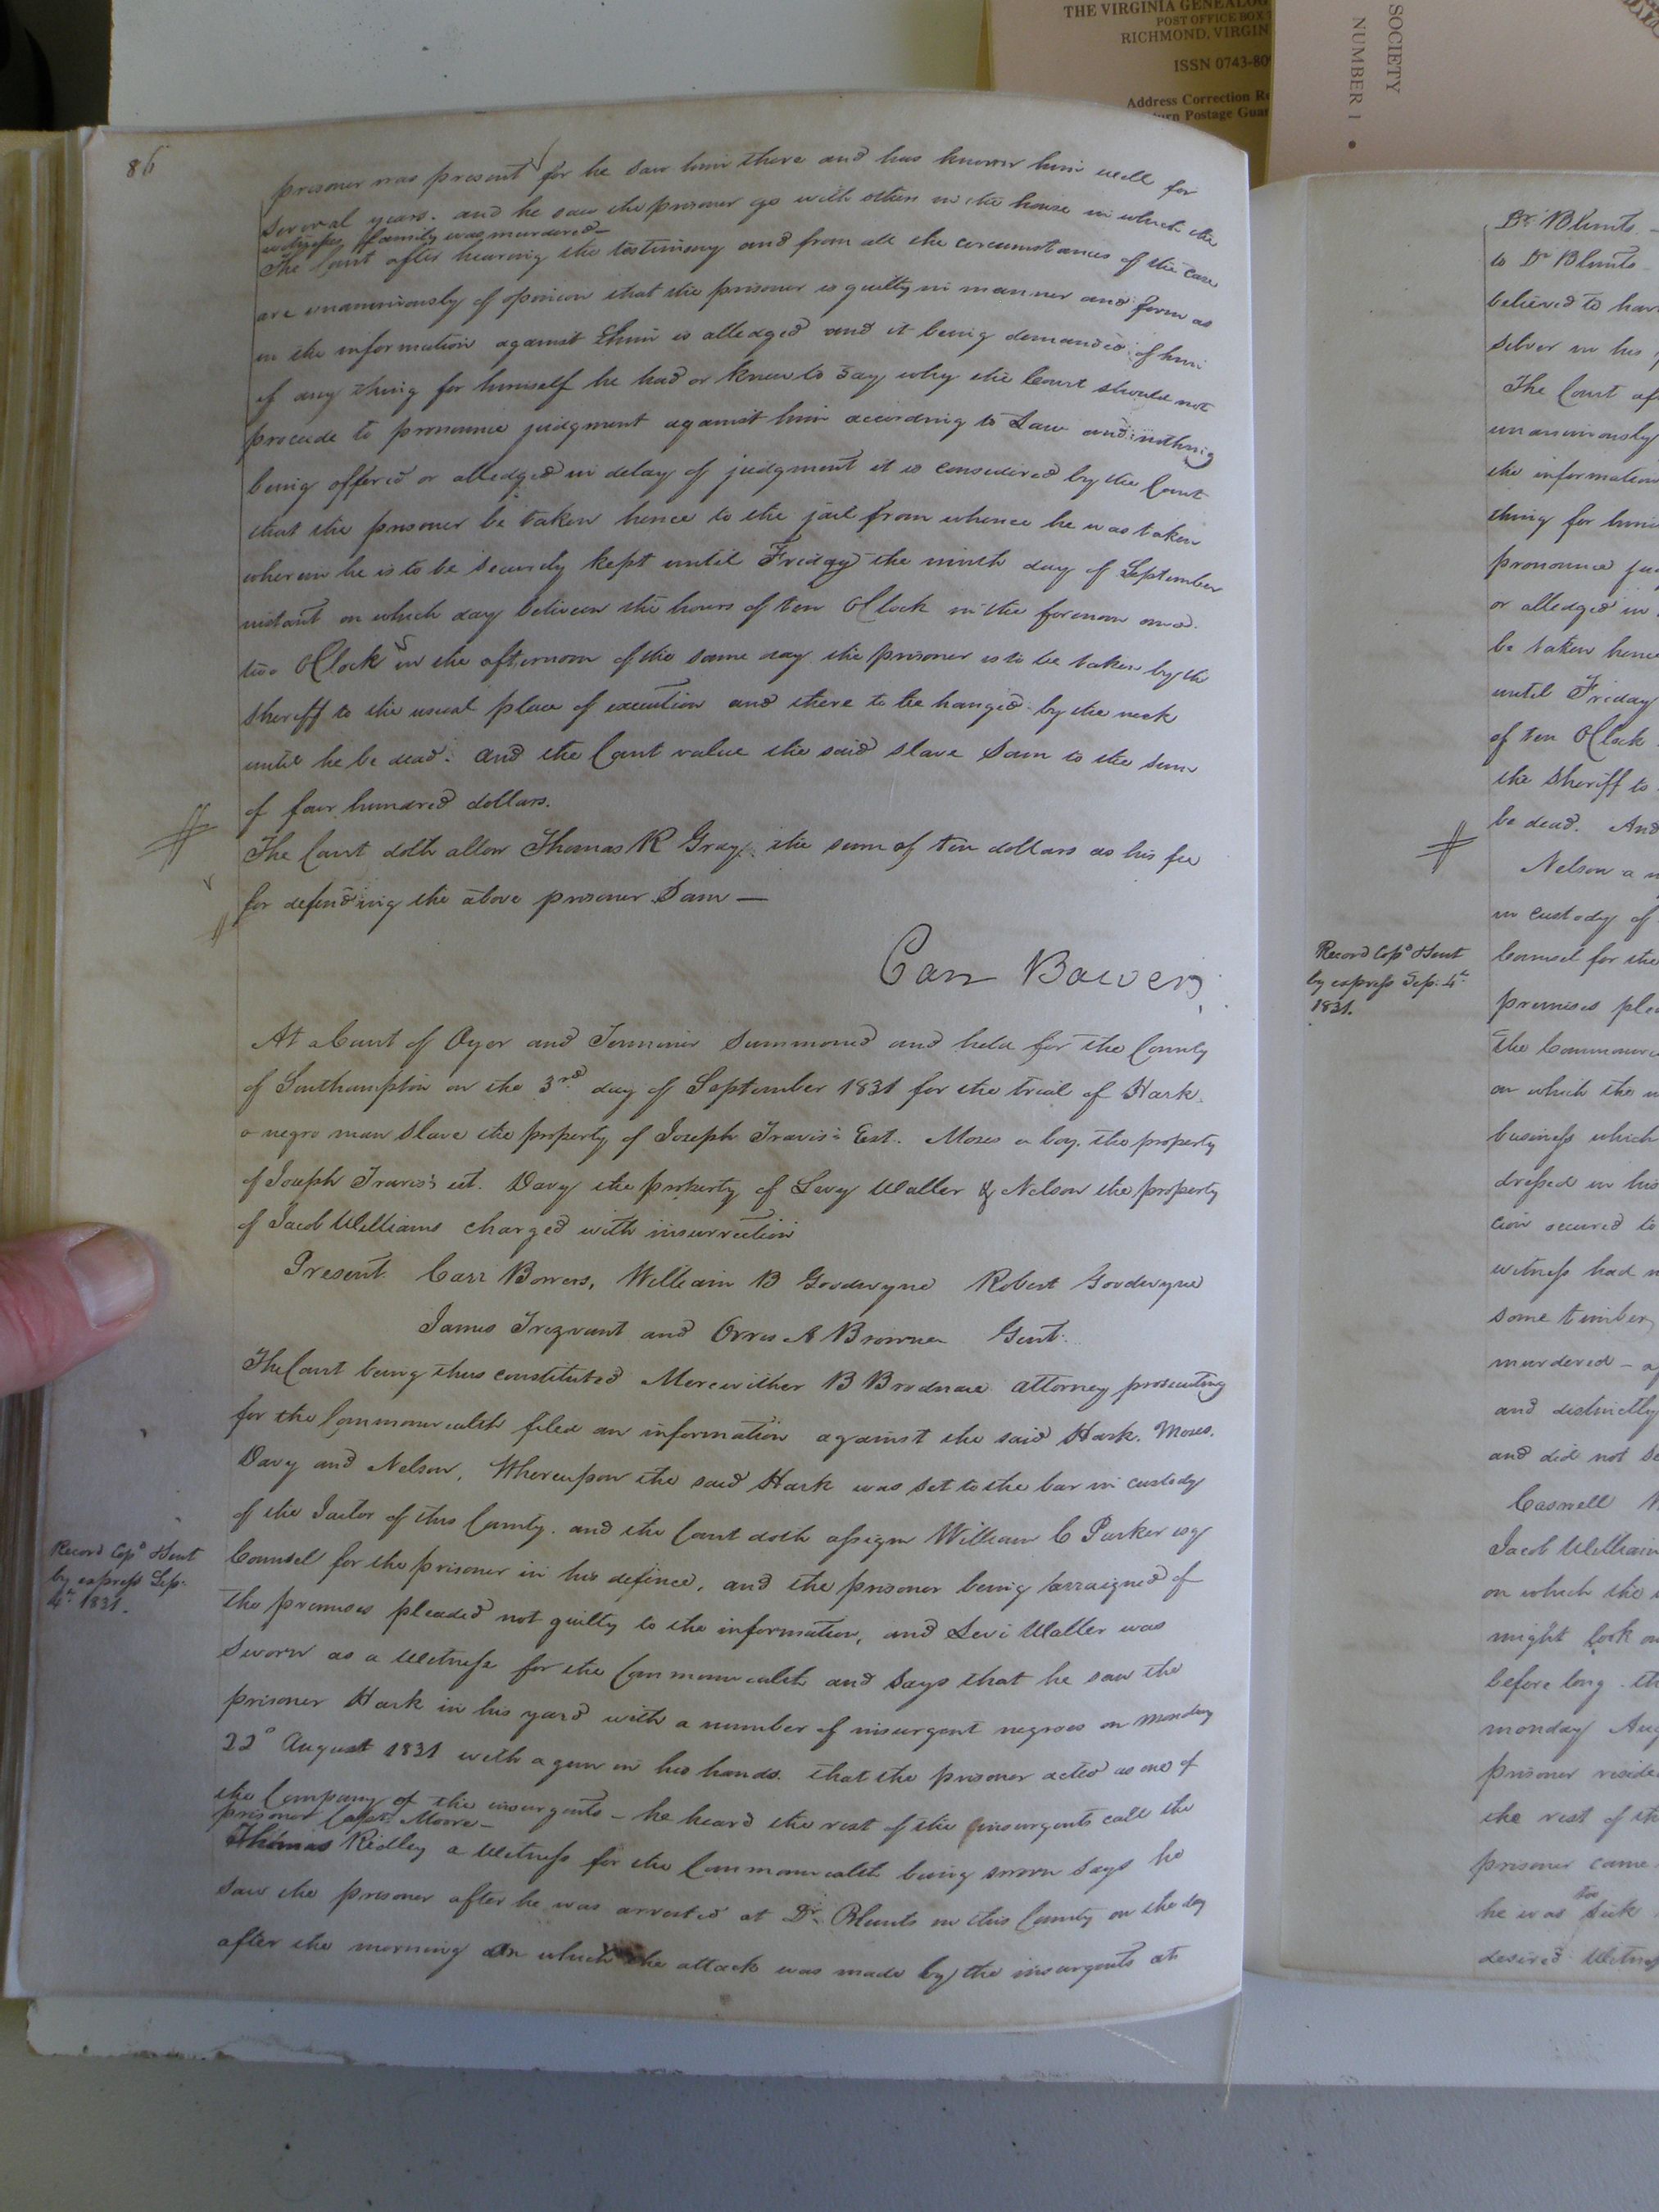 THE VIRGINIA GENEALOG
POST OFFICE BOX
RICHMOND, VIRGIN
ISSN 0743-80
Address Correction Re
urn Postage Guar
SOCIETY
NUMBER 1 •
86
prisoner was present for he saw him there and has known him well for
several years. and he saw the prisoner go with others in the house in which the
witness family was murdered —
The Court after hearing the testimony and from all the circumstances of the case
are unanimously of opinion that the prisoner is guilty in manner and form as
in the information against him is alledged and it being demanded of him
if any thing for himself he had or knew to say why the Court should not
procede to pronounce judgment against him according to Law and nothing
being offered or alledged in delay of judgment it is considered by the Court
that the prisoner be taken hence to the jail from whence he was taken
wherein he is to be securely kept until Friday the ninth day of September
instant on which day between the hours of ten OClock in the forenoon and
two OClock in the afternoon of the same day the prisoner is to be taken by the
Sheriff to the usual place of execution and there to be hanged by the neck
until he be dead. And the Court value the said slave Sam to the sum
of four hundred dollars.
The Court doth allow Thomas R Gray the sum of ten dollars as his fee
for defending the above prisoner Sam —
Carr Bowers
At a Court of Oyer and Terminer summoned and held for the County
of Southampton on the 3rd day of September 1831 for the trial of Hark
a negro man slave the property of Joseph Travis's Est. Moses a boy the property
of Joseph Travis's est. Davy the property of Levy Waller & Nelson the property
of Jacob Williams charged with insurrection
Present Carr Bowers, William B Goodwyne Robert Goodwyne
James Trezvant and Orris A Browne Gent.
The Court being thus constituted Merewither B Brodnax attorney prosecuting
for the Commonwealth filed an information against the said Hark. Moses.
Davy and Nelson. Whereupon the said Hark was set to the bar in custody
of the Jailor of this County. and the Court doth assign William C Parker esqr
Counsel for the prisoner in his defence, and the prisoner being arraigned of
the premises pleaded not guilty to the information, and Levi Waller was
Record Copd & Sent
by express Sep.
4th 1831.
sworn as a Witness for the Commonwealth and says that he saw the
prisoner Hark in his yard with a number of insurgent negroes on monday
22d August 1831 with a gun in his hands. that the prisoner acted as one of
the Company of the insurgents — he heard the rest of the insurgents call the
prisoner Capt. Moore —
Thomas Ridley a Witness for the Commonwealth being sworn says he
saw the prisoner after he was arrested at Dr. Blunts in this County on the day
after the morning on which the attack was made by the insurgents at
Dr. Blunts —
to Dr Blunts
believed to hav
silver in his
The Court af
unanimously
the information
thing for him
pronounce ju
or alledged in
be taken henc
until Friday
of ten OClock
the Sheriff to
be dead. And
Nelson a
in custody of
Record Copd & Sent
by express Sep. 4th
1831.
Counsel for the
premises plea
The Commonw
on which the
business which
dressed in his
cion occured to
witness had
some timber
murdered — a
and distinctly
and did not
Caswell
Jacob William
on which the
might look
before long. th
monday Aug
prisoner reside
the rest of th
prisoner came
he was too sick
desired Witnes